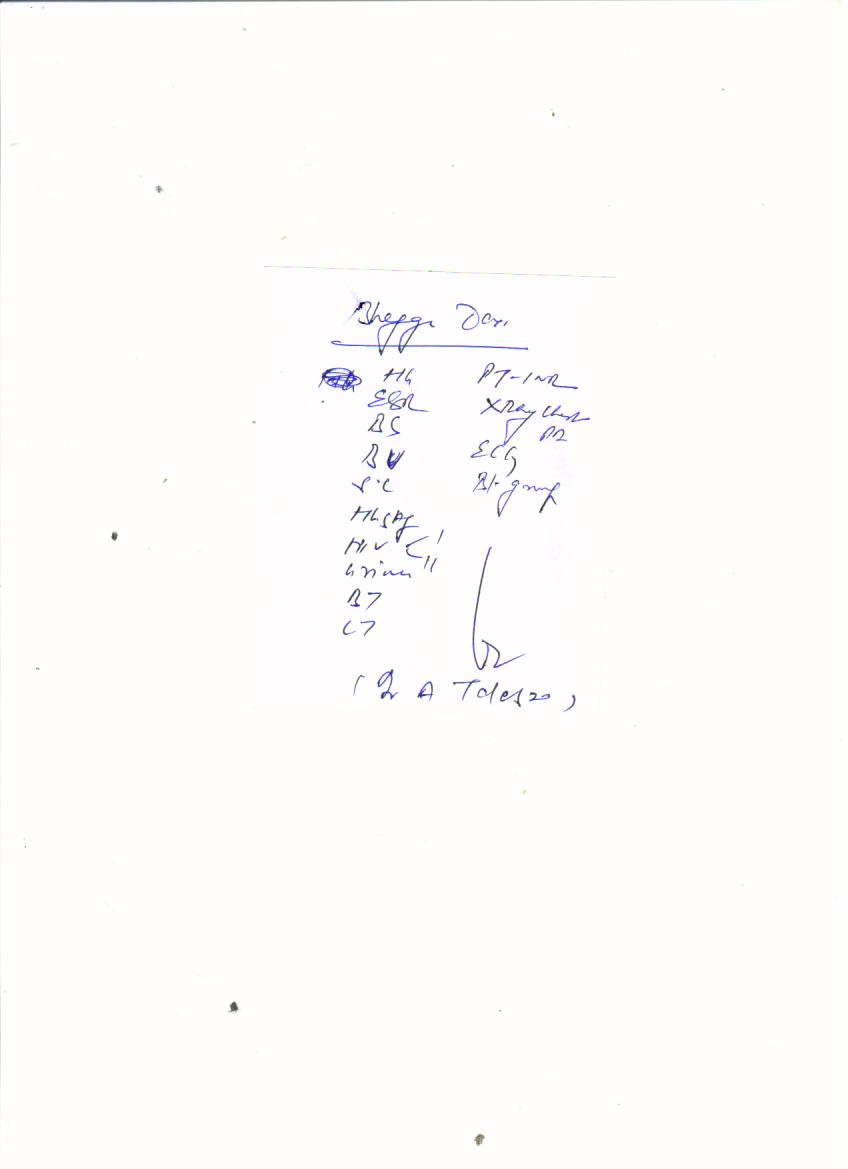 Hb
ESR
BS
BU
S.C
HbsAg
HIV < I II
Urine
BT
CT
PT-INR
XRay Chest
PA
ECG
Bl. group
( Dr A